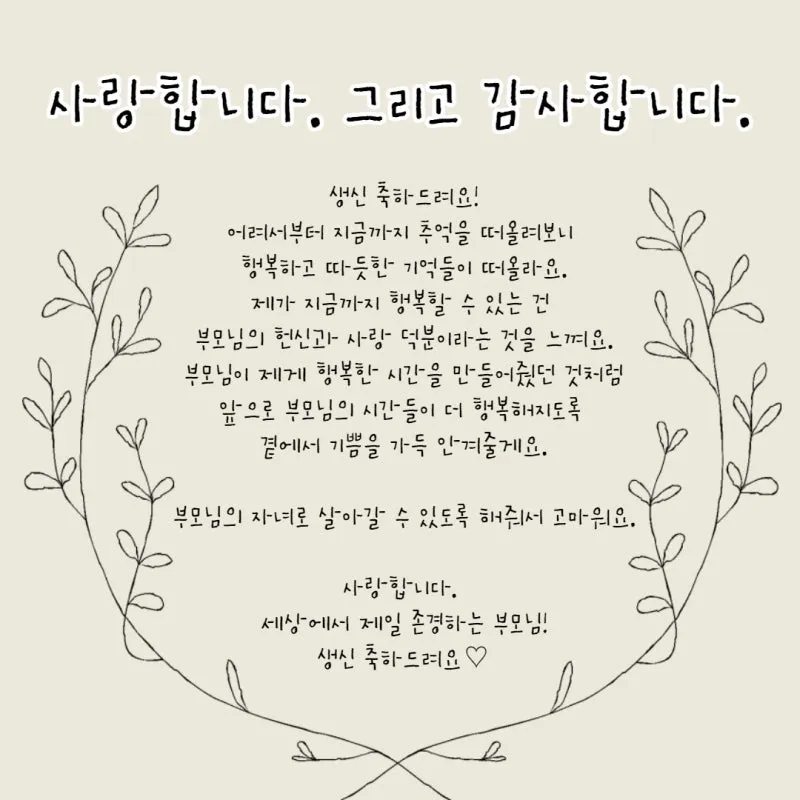 사랑합니다. 그리고 감사합니다.
생신 축하드려요!
어려서부터 지금까지 추억을 떠올려보니
행복하고 따듯한 기억들이 떠올라요.
제가 지금까지 행복할 수 있는 건
부모님의 헌신과 사랑 덕분이라는 것을 느껴요.
부모님이 제게 행복한 시간을 만들어줬던 것처럼
앞으로 부모님의 시간들이 더 행복해지도록
곁에서 기쁨을 가득 안겨줄게요.
부모님의 자녀로 살아갈 수 있도록 해줘서 고마워요.
사랑합니다.
세상에서 제일 존경하는 부모님!
생신 축하드려요♡